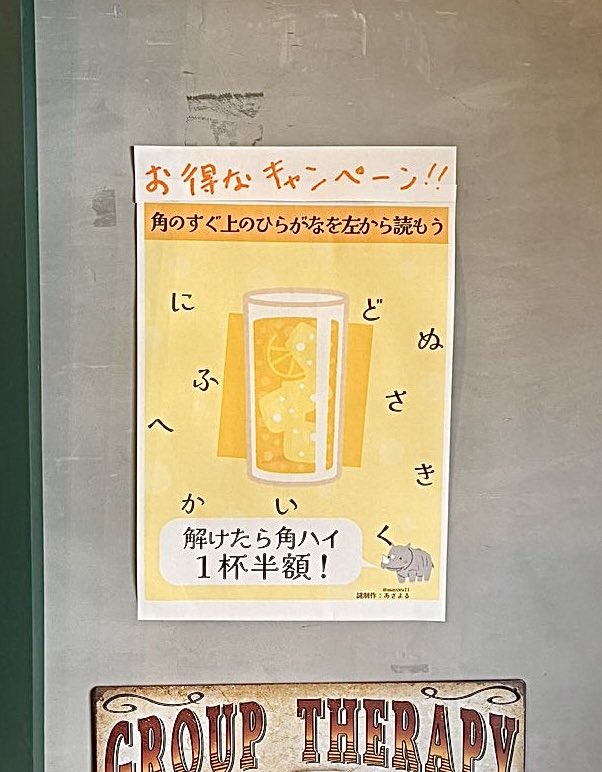 お得なキャンペーン!!
角のすぐ上のひらがなを左から読もう
に
ど
ぬ
ふ
さ
へ
き
か
い
く
解けたら角ハイ
1杯半額!
@mayoru11
謎制作:あさよる
GROUP THERAPY